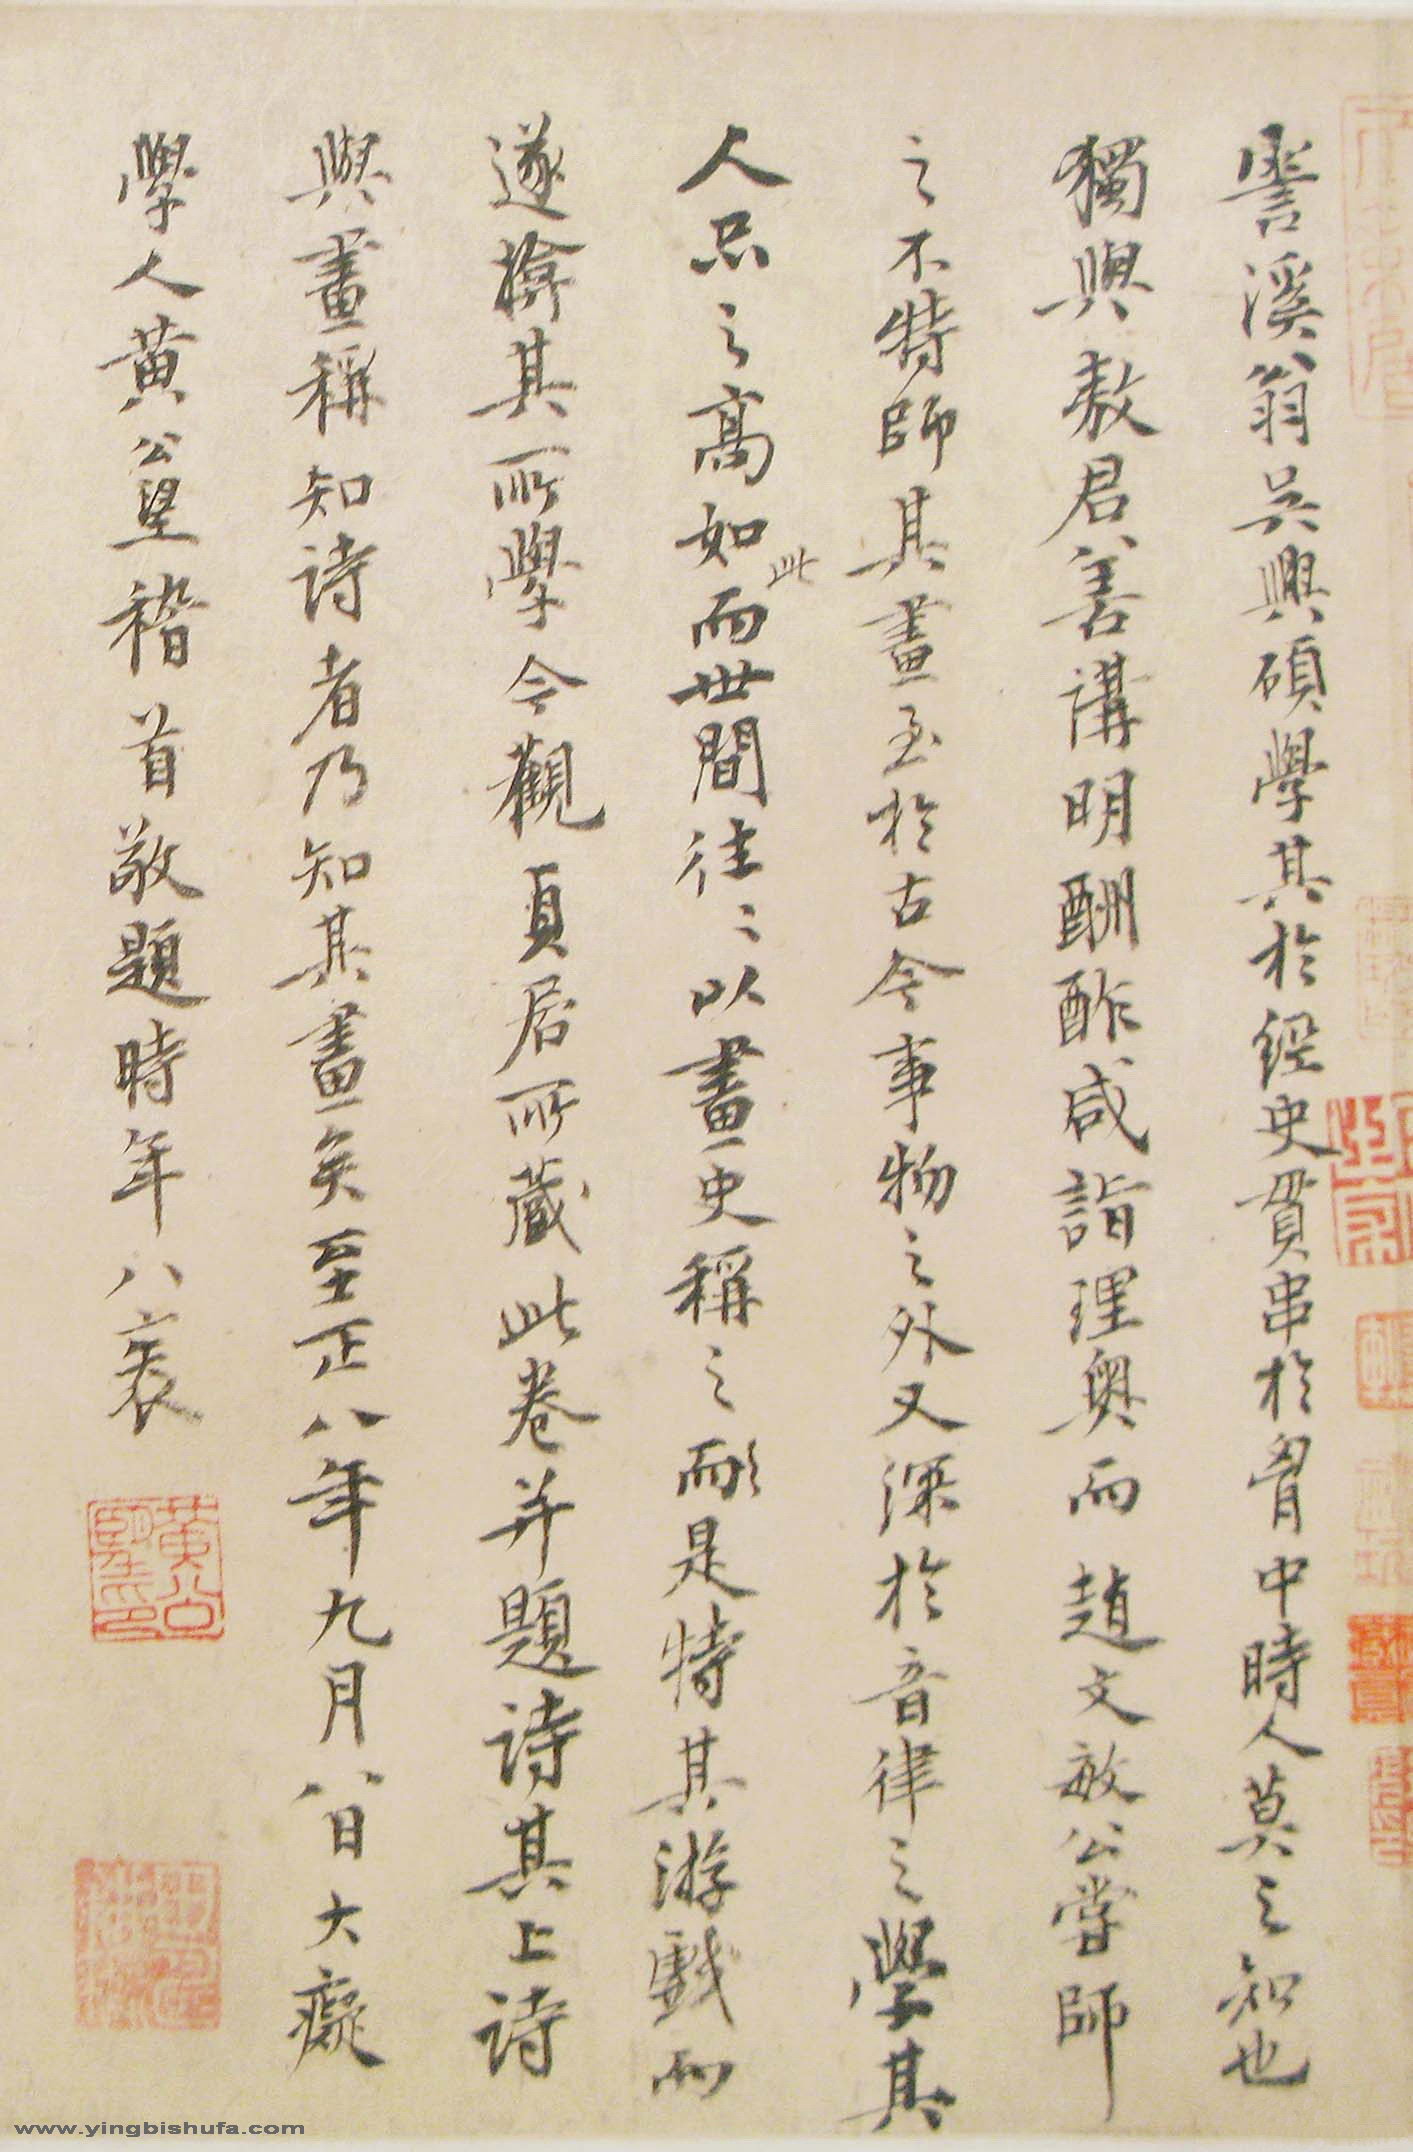 霅溪翁吳興碩學其於經史貫串於胷中時人莫之知也
獨與敖君善講明酬酢咸詣理奧而趙文敏公嘗師
之不特師其畫至於古今事物之外又深於音律之學其
人品之高如此而世間往〻以畫史稱之耐是特其游戲而
遂揜其所學今觀貞居所藏此卷并題詩其上詩
與畫稱知詩者乃知其畫矣至正八年九月八日大癡
學人黃公望稽首敬題時年八袠
黃公望印
www.yingbishufa.com